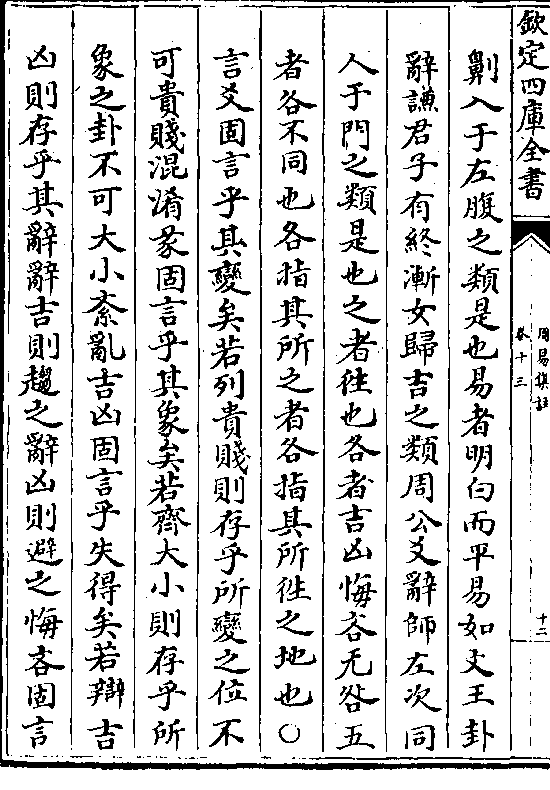 欽定四庫全書
周易集註
卷十三
十二
劓入于左腹之類是也易者明白而平易如文王卦
辭謙君子有終漸女歸吉之類周公爻辭師左次同
人于門之類是也之者徃也各者吉凶悔吝无咎五
者各不同也各指其所之者各指其所徃之地也〇
言爻固言乎其變矣若列貴賤則存乎所變之位不
可貴賤混淆彖固言乎其象矣若齊大小則存乎所
象之卦不可大小紊亂吉凶固言乎失得矣若辯吉
凶則存乎其辭辭吉則趨之辭凶則避之悔吝固言